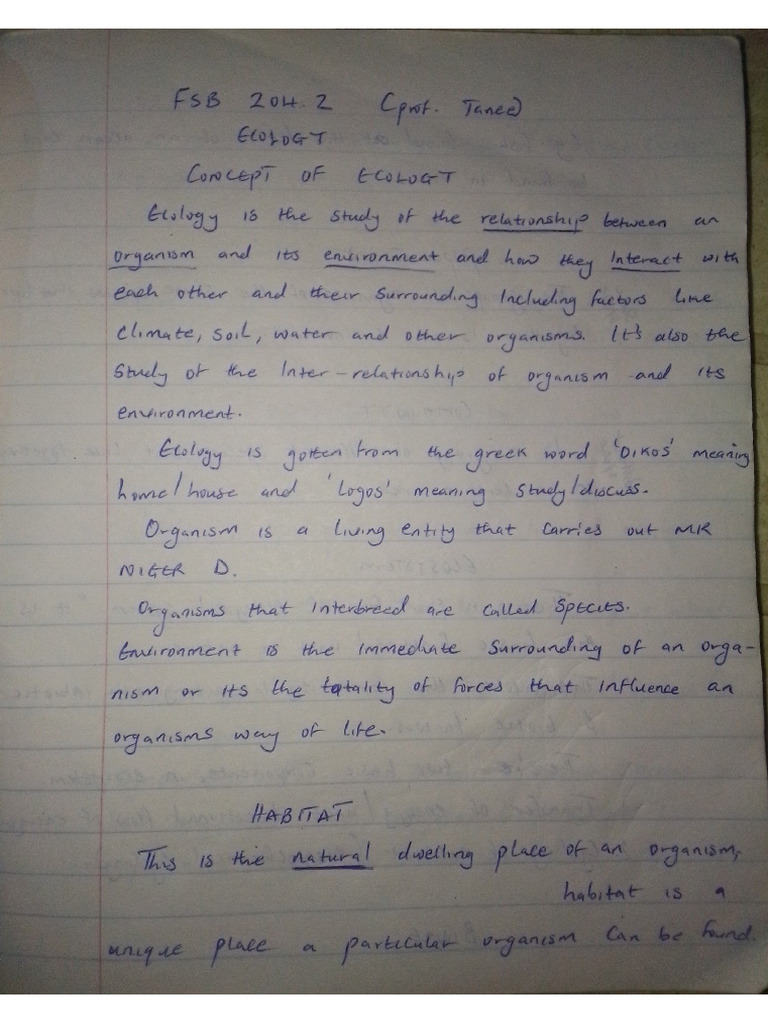 FSB 204.2 (prof. Tanee)
ECOLOGY
CONCEPT OF ECOLOGY
Ecology is the study of the relationship between an
organism and its environment and how they Interact with
each other and their surrounding Including factors like
climate, soil, water and other organisms. It's also the
study of the Inter-relationship of organism and its
environment.
Ecology is gotten from the greek word 'OIKOS' meaning
home/house and 'Logos' meaning study/discuss.
Organism is a living entity that carries out MR
NIGER D.
Organisms that interbreed are called SPECIES.
Environment is the immediate surrounding of an orga-
nism or its the totality of forces that influence an
organisms way of life.
HABITAT
This is the natural dwelling place of an organism,
habitat is a
unique place a particular organism can be found.